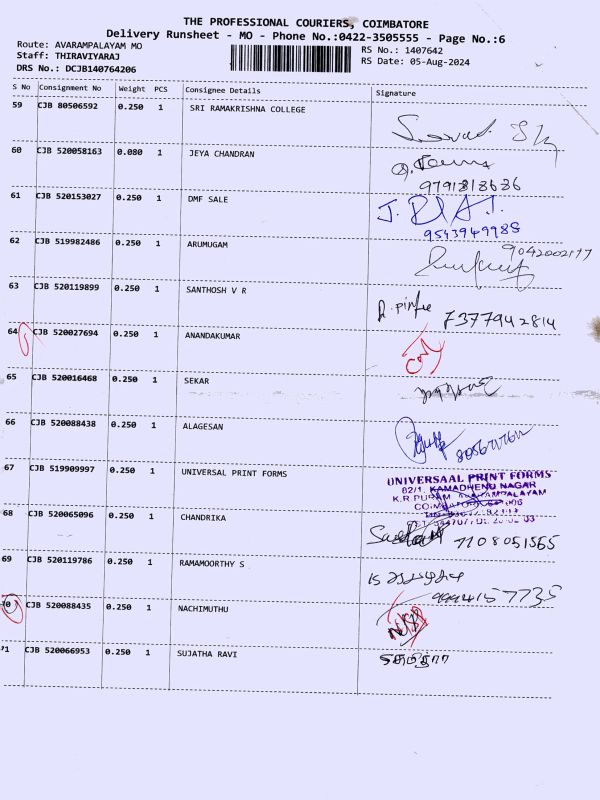 THE PROFESSIONAL COURIERS, COIMBATORE
Delivery Runsheet - MO - Phone No.:0422-3505555 - Page No.:6
Route: AVARAMPALAYAM MO
RS No.: 1407642
Staff: THIRAVIYARAJ
RS Date: 05-Aug-2024
DRS No.: DCJB140764206
S No Consignment No Weight PCS Consignee Details Signature
59 CJB 80506592 0.250 1 SRI RAMAKRISHNA COLLEGE
60 CJB 520058163 0.080 1 JEYA CHANDRAN
9791318636
61 CJB 520153027 0.250 1 DMF SALE
9543949988
62 CJB 519982486 0.250 1 ARUMUGAM
9042002177
63 CJB 520119899 0.250 1 SANTHOSH V R
7377942814
64 CJB 520027694 0.250 1 ANANDAKUMAR
65 CJB 520016468 0.250 1 SEKAR
66 CJB 520088438 0.250 1 ALAGESAN
67 CJB 519909997 0.250 1 UNIVERSAL PRINT FORMS
UNIVERSAAL PRINT FORMS
82/1, KAMADHENU NAGAR
K.R.PURAM, AVARAMPALAYAM
68 CJB 520065096 0.250 1 CHANDRIKA
7108051565
69 CJB 520119786 0.250 1 RAMAMOORTHY S
9994157735
70 CJB 520088435 0.250 1 NACHIMUTHU
71 CJB 520066953 0.250 1 SUJATHA RAVI